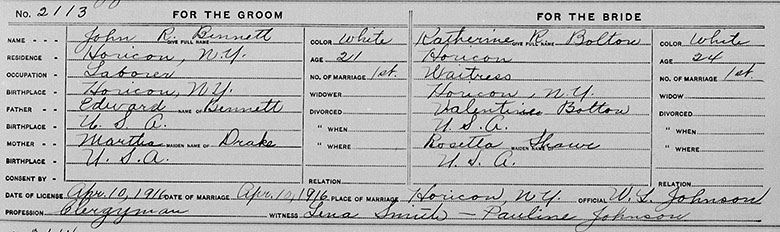 No. 2113 FOR THE GROOM FOR THE BRIDE
NAME John R. Bennett GIVE FULL NAME COLOR White Katherine R. Bolton GIVE FULL NAME COLOR White
RESIDENCE Horicon, N.Y. AGE 21 Horicon AGE 24
OCCUPATION Laborer NO. OF MARRIAGE 1st. Waitress NO. OF MARRIAGE 1st.
BIRTHPLACE Horicon, N.Y. WIDOWER Horicon, N.Y. WIDOW
FATHER Edward NAME OF Bennett DIVORCED Valentine Bolton DIVORCED
BIRTHPLACE U.S.A. " WHEN U.S.A. " WHEN
MOTHER Martha MAIDEN NAME OF Drake " WHERE Rosetta MAIDEN NAME OF Shawe " WHERE
BIRTHPLACE U.S.A. U.S.A.
CONSENT BY RELATION RELATION
DATE OF LICENSE Apr. 10, 1916 DATE OF MARRIAGE Apr. 10, 1916 PLACE OF MARRIAGE Horicon, N.Y. OFFICIAL W. L. Johnson
PROFESSION Clergyman WITNESS Lena Smith - Pauline Johnson